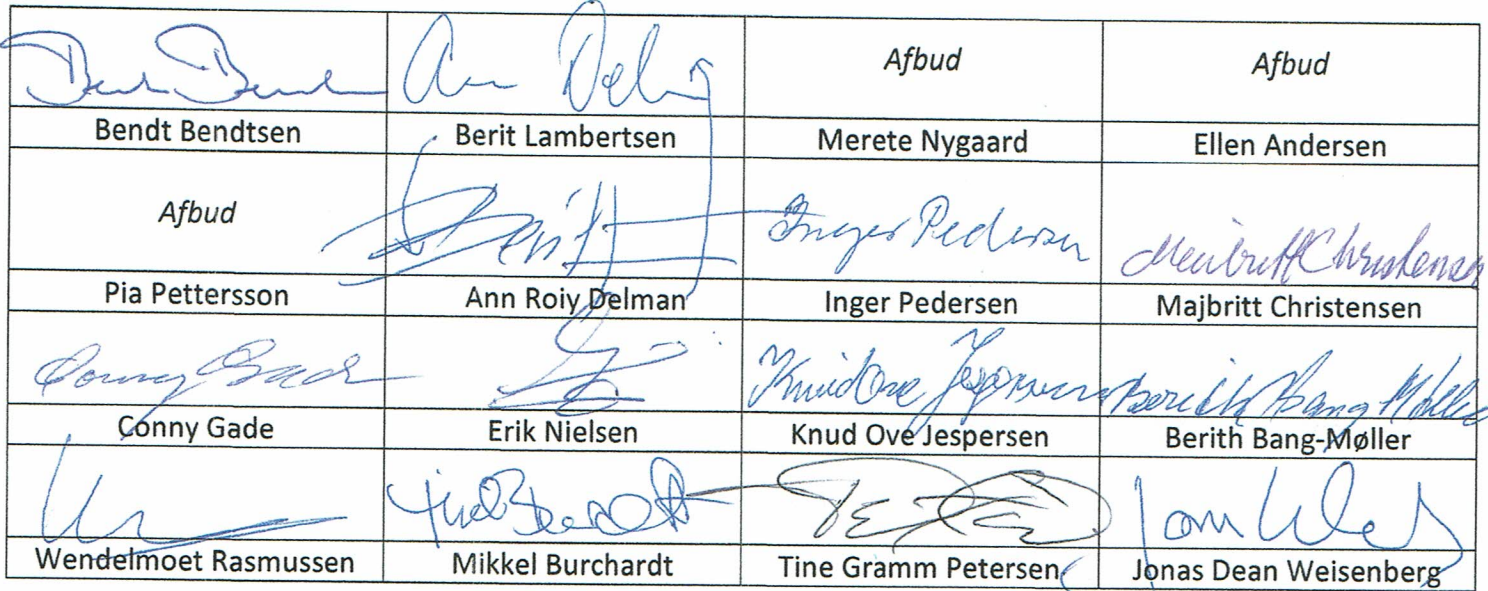 Afbud Afbud
Bendt Bendtsen Berit Lambertsen Merete Nygaard Ellen Andersen
Afbud Berit Inger Pedersen Majbritt Christensen
Pia Pettersson Ann Roiy Delman Inger Pedersen Majbritt Christensen
Conny Gade Knud Ove Jespersen Berith Bang Møller
Conny Gade Erik Nielsen Knud Ove Jespersen Berith Bang-Møller
Wendelmoet Rasmussen Mikkel Burchardt Tine Gramm Petersen Jonas Dean Weisenberg